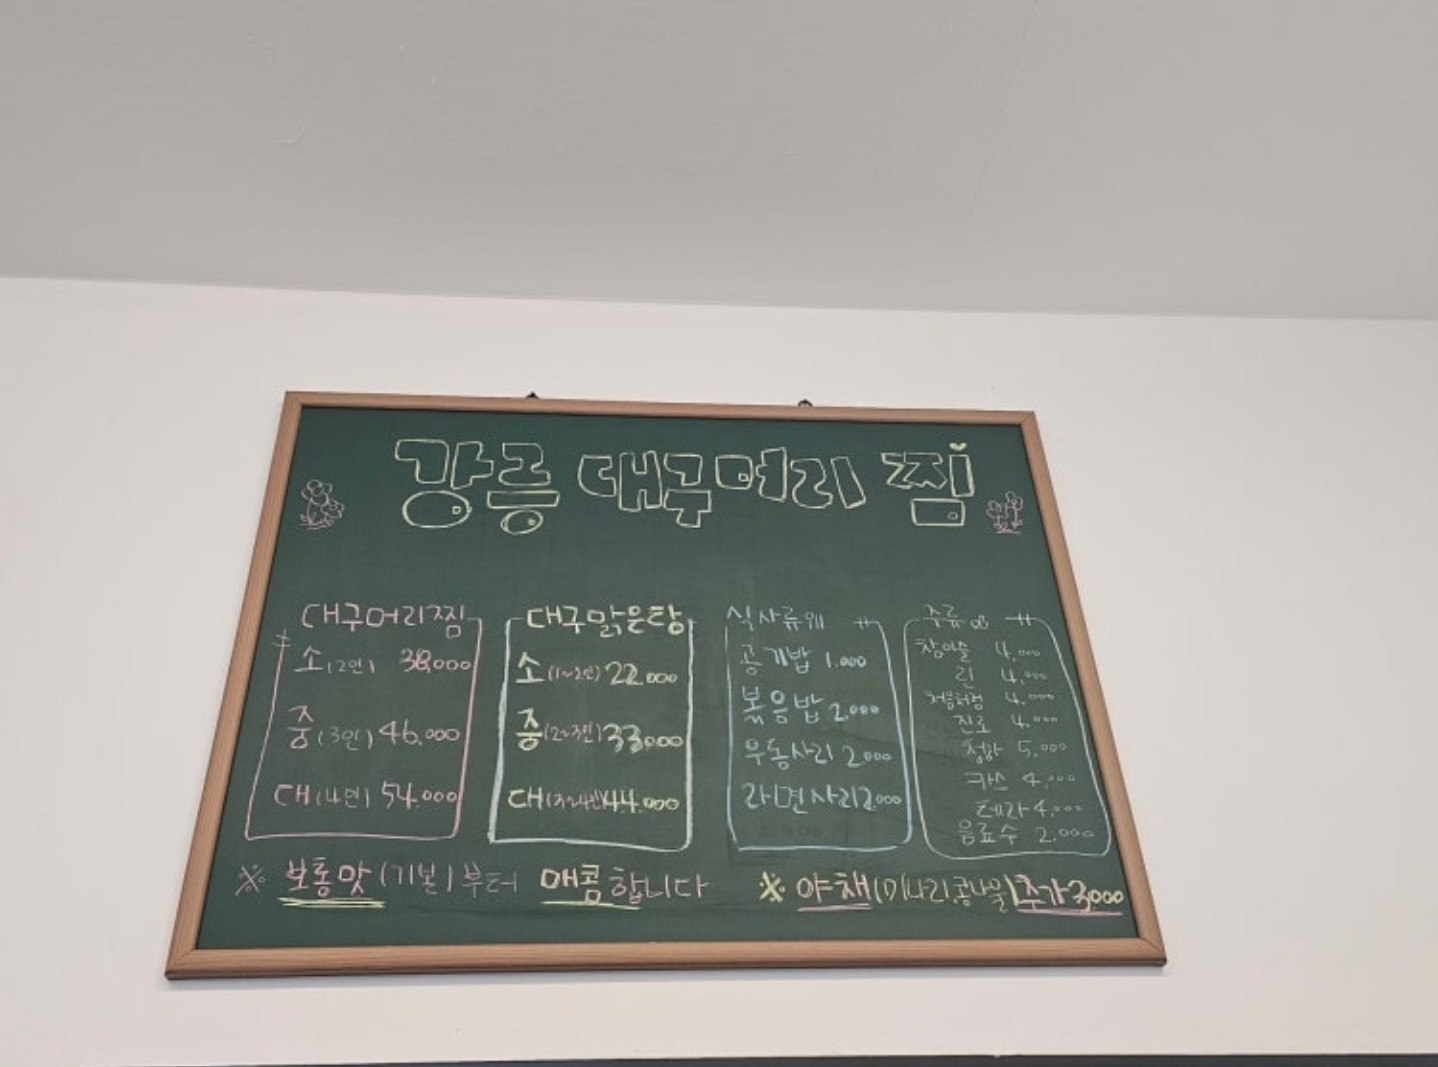 강릉 대구머리 찜
대구머리찜
소(2인) 38,000
중(3인) 46.000
대(4인) 54.000
대구맑은탕
소(1~2인) 22.000
중(2~3인) 33.000
대(3~4인) 44.000
식사류
공기밥 1.000
볶음밥 2.000
우동사리 2.000
라면사리 2.000
주류
참이슬 4.000
린 4.000
처음처럼 4.000
진로 4.000
청하 5.000
카스 4.000
테라 4.000
음료수 2.000
※ 보통맛(기본)부터 매콤합니다
※ 야채(미나리,콩나물)추가 3000